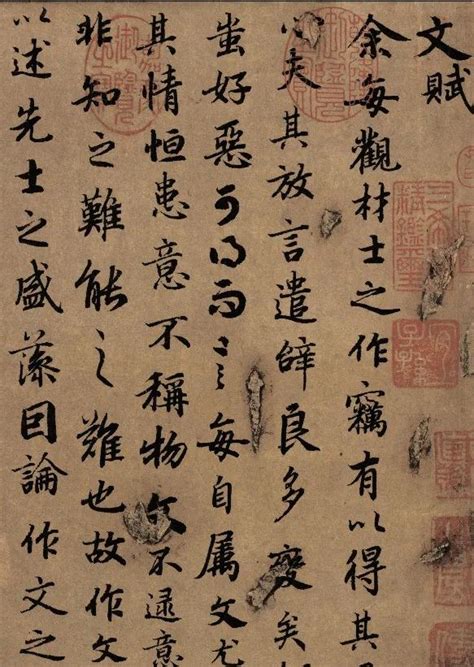 文賦
余每觀材士之作竊有以得其
心夫其放言遣辭良多變矣
蚩好惡可得而言每自屬文尤
其情恒患意不稱物文不逮意
非知之難能之難也故作文
以述先士之盛藻因論作文之
三希堂精鑑璽
宜子孫